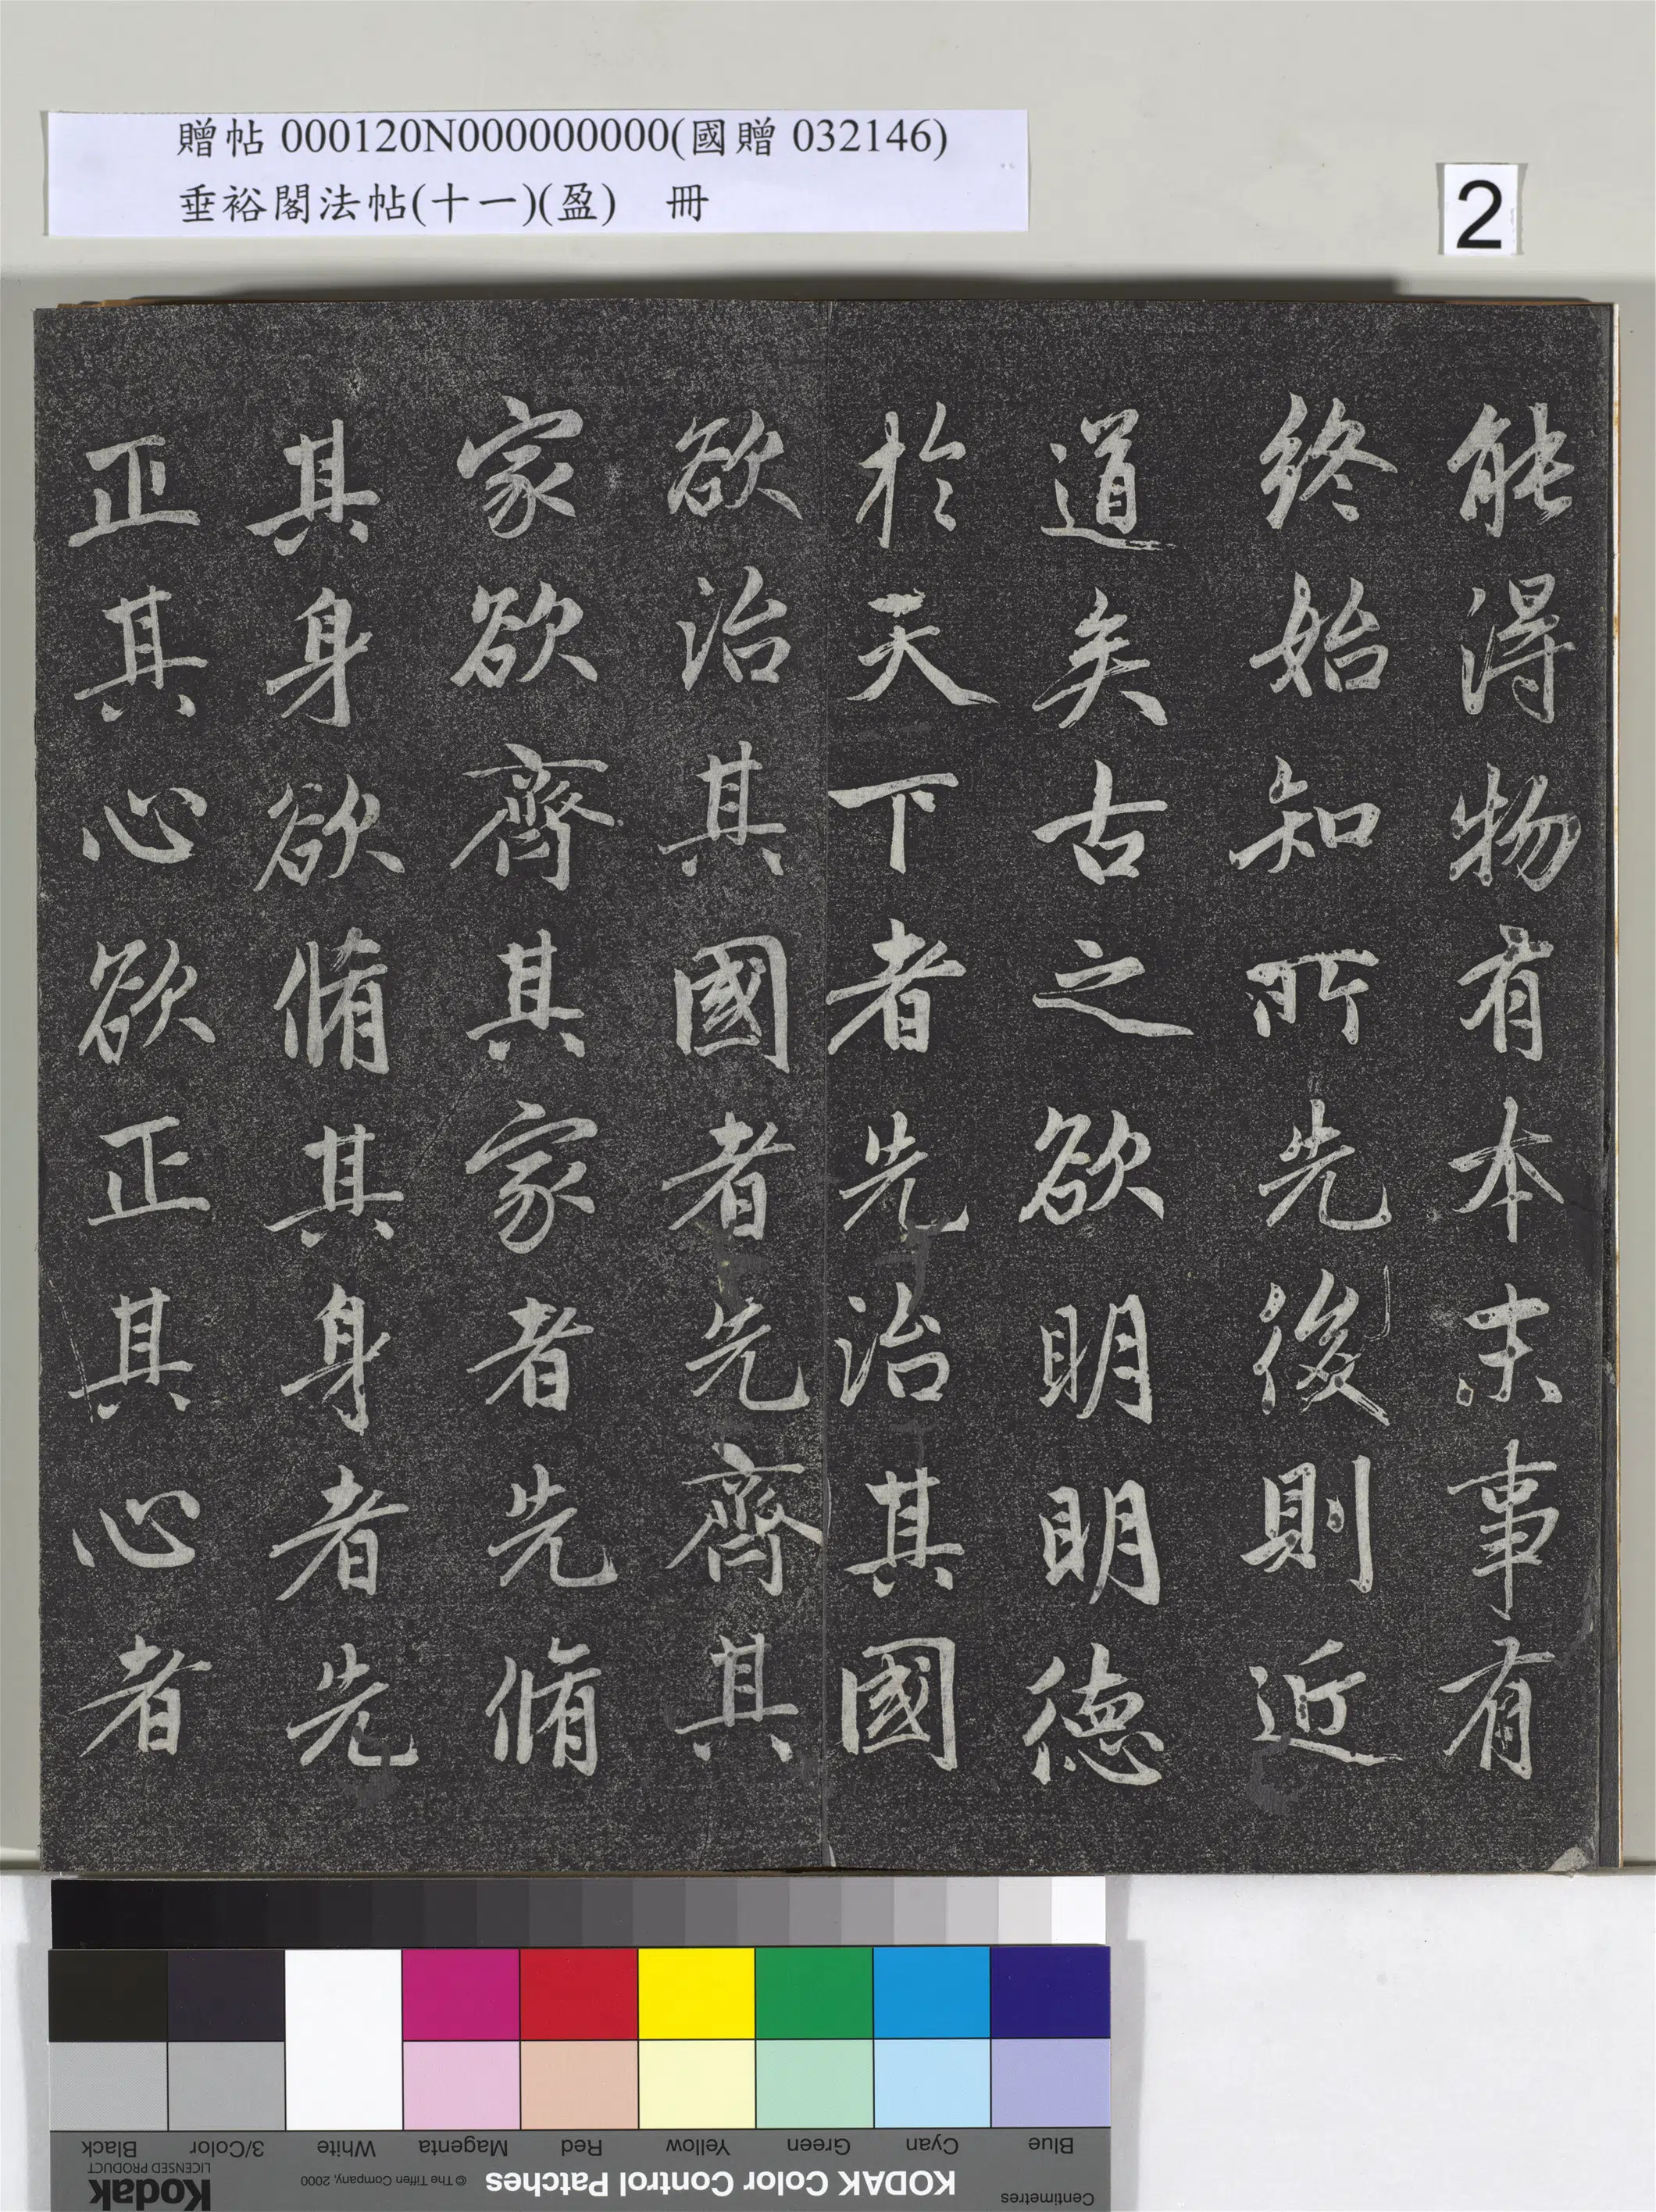 贈帖 000120N000000000(國贈 032146)
垂裕閣法帖(十一)(盈) 冊
2
能得物有本末事有
終始知所先後則近
道矣古之欲明明德
於天下者先治其國
欲治其國者先齊其
家欲齊其家者先脩
其身欲脩其身者先
正其心欲正其心者
Black
3/Color
White
Magenta
Red
Yellow
Green
Cyan
Blue
Kodak
LICENSED PRODUCT
© The Tiffen Company, 2000
KODAK Color Control Patches
Centimetres